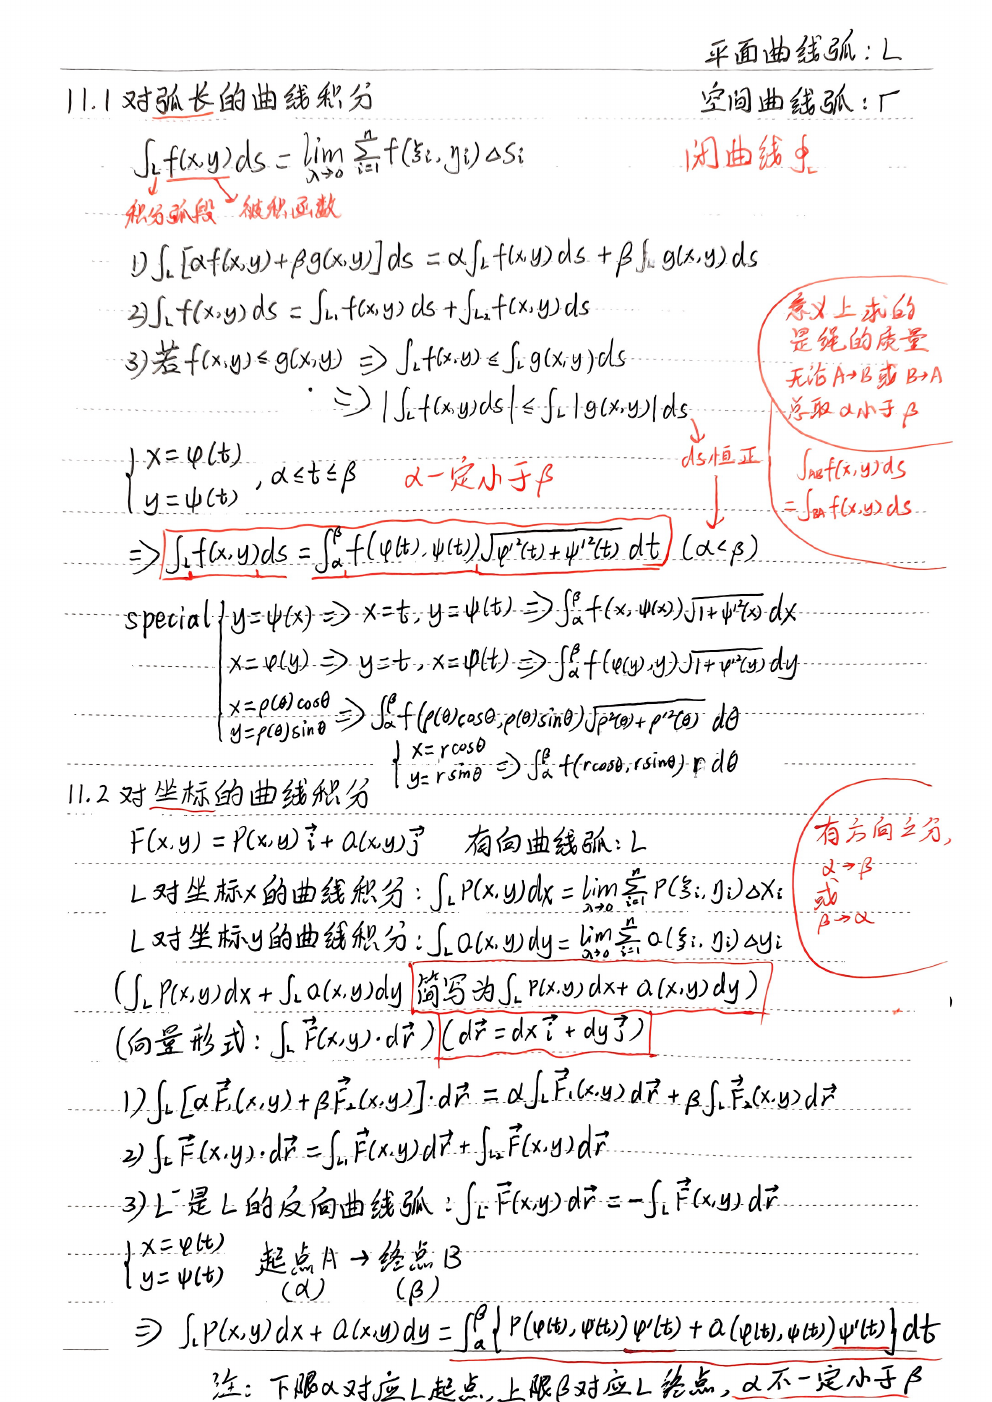 平面曲线弧：L
11.1 对弧长的曲线积分
空间曲线弧：Γ
∫_L f(x,y)ds = lim_{λ→0} Σ_{i=1}^{n} f(ξi, ηi)△Si
闭曲线 ∮_L
积分弧段 被积函数
1) ∫_L [αf(x,y)+βg(x,y)]ds = α∫_L f(x,y)ds + β∫_L g(x,y)ds
2) ∫_L f(x,y)ds = ∫_{L1} f(x,y)ds + ∫_{L2} f(x,y)ds
3) 若 f(x,y) ≤ g(x,y) => ∫_L f(x,y) ≤ ∫_L g(x,y)ds
=> |∫_L f(x,y)ds| ≤ ∫_L |g(x,y)|ds
意义上求的
是绳的质量
无论A→B或B→A
总取α小于β
ds恒正
∫_{AB} f(x,y)ds
= ∫_{BA} f(x,y)ds
{ x=φ(t)
y=ψ(t) , α≤t≤β α一定小于β
=> ∫_L f(x,y)ds = ∫_α^β f(φ(t),ψ(t))√(φ'²(t)+ψ'²(t)) dt (α<β)
special { y=ψ(x) => x=t, y=ψ(t) => ∫_α^β f(x,ψ(x))√(1+ψ'²(x)) dx
x=φ(y) => y=t, x=φ(t) => ∫_α^β f(φ(y),y)√(1+φ'²(y)) dy
x=ρ(θ)cosθ
y=ρ(θ)sinθ => ∫_α^β f(ρ(θ)cosθ,ρ(θ)sinθ)√(ρ²(θ)+ρ'²(θ)) dθ
{ x=rcosθ
y=rsinθ => ∫_α^β f(rcosθ,rsinθ) r dθ
11.2 对坐标的曲线积分
F(x,y) = P(x,y)i⃗ + Q(x,y)j⃗ 有向曲线弧：L
L对坐标x的曲线积分：∫_L P(x,y)dx = lim_{λ→0} Σ_{i=1}^{n} P(ξi, ηi)△xi
L对坐标y的曲线积分：∫_L Q(x,y)dy = lim_{λ→0} Σ_{i=1}^{n} Q(ξi, ηi)△yi
有方向之分,
α→β
或
β→α
(∫_L P(x,y)dx + ∫_L Q(x,y)dy 简写为 ∫_L P(x,y)dx + Q(x,y)dy)
(向量形式：∫_L F⃗(x,y)·dr⃗) (dr⃗ = dx i⃗ + dy j⃗)
1) ∫_L [αF⃗₁(x,y)+βF⃗₂(x,y)]·dr⃗ = α∫_L F⃗₁(x,y)dr⃗ + β∫_L F⃗₂(x,y)dr⃗
2) ∫_L F⃗(x,y)·dr⃗ = ∫_{L1} F⃗(x,y)dr⃗ + ∫_{L2} F⃗(x,y)dr⃗
3) L⁻是L的反向曲线弧：∫_{L⁻} F⃗(x,y)dr⃗ = -∫_L F⃗(x,y)dr⃗
{ x=φ(t)
y=ψ(t) 起点A → 终点B
(α) (β)
=> ∫_L P(x,y)dx + Q(x,y)dy = ∫_α^β {P(φ(t),ψ(t))φ'(t) + Q(φ(t),ψ(t))ψ'(t)}dt
注：下限α对应L起点,上限β对应L终点,α不一定小于β